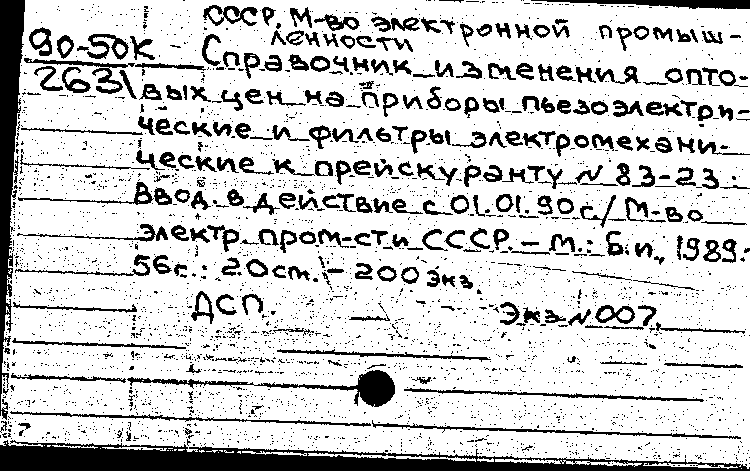 СССР. М-во электронной промыш-
ленности
90-50К Справочник изменения опто-
2631 вых цен на приборы пьезоэлектри-
ческие и фильтры электромехани-
ческие к прейскуранту N 83-23.
Ввод. в действие с 01.01.90г./ М-во
электр. пром-сти СССР. - М.: Б.и., 1989.-
56с.: 20см. - 200 экз.
ДСП. Экз N 007.